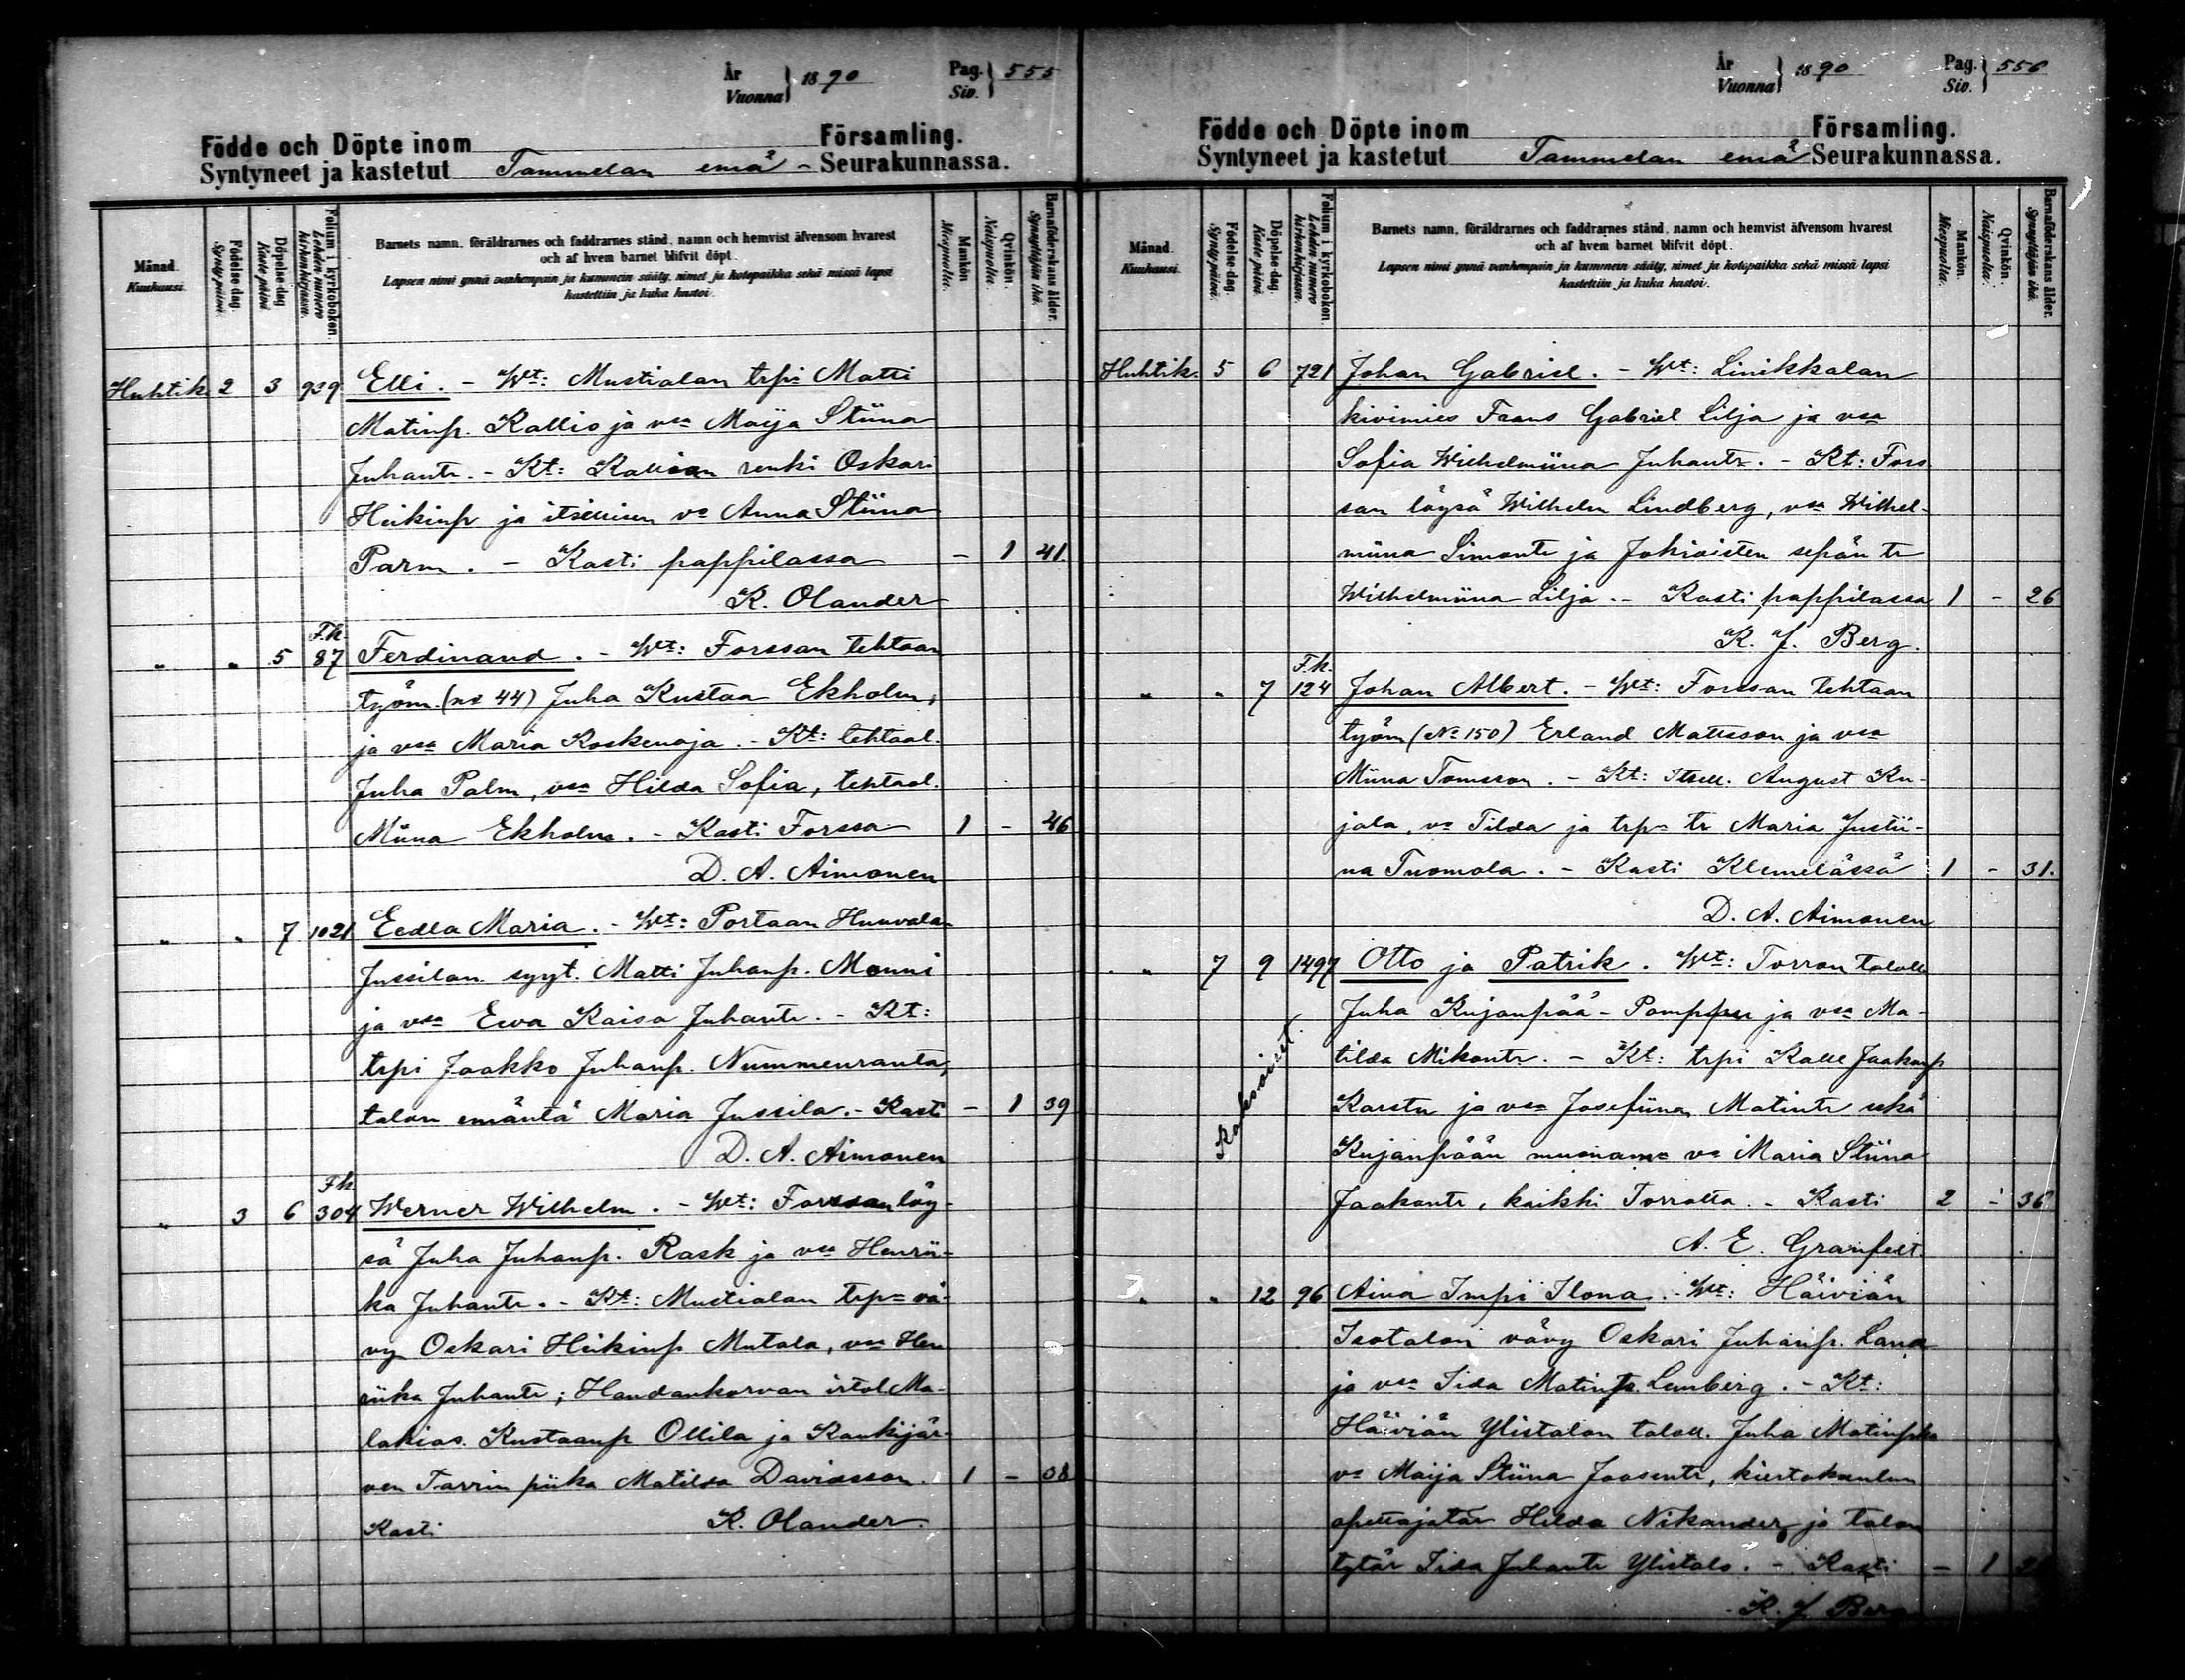 År
Vuonna } 1890
Pag.
Siv. } 555
Födde och Döpte inom Församling.
Syntyneet ja kastetut Tammelan emä- Seurakunnassa.
Månad.
Kuukausi.
Födelse-dag.
Syntypäivä.
Döpelse-dag
Kaste päivä
Folium i kyrkoboken.
Lehden numero kirkonkirjassa.
Barnets namn, föräldrarnes och faddrarnes stånd, namn och hemvist äfvensom hvarest
och af hvem barnet blifvit döpt.
Lapsen nimi ynnä vanhempain ja kummein sääty, nimet ja kotopaikka sekä missä lapsi
kastettiin ja kuka kastoi.
Mankön
Miespuolta.
Qvinkön.
Naispuolta.
Barnaföderskans ålder.
Synnyttäjän ikä.
Huhtik. 2 3 939 Elli. - Wt: Mustialan trpi Matti
Matinp. Kallio ja vsa Maija Stiina
Juhantr. - Kt: Kallion renki Oskari
Heikinp ja itsellisen va Anna Stiina
Parm. - Kasti pappilassa - 1 41.
K. Olander
F.k.
" " 5 87 Ferdinand. - Wt: Forssan tehtaan
työm. (no 44) Juha Kustaa Ekholm,
ja vsa Maria Koskenoja. - Kt: tehtaal.
Juha Palm, vsa Hilda Sofia, tehtaal.
Miina Ekholm. - Kasti Forssa 1 - 46
D. A. Aimonen
" " 7 1021 Eedla Maria. - Wt: Portaan Huuvalan
Jussilan syyt. Matti Juhanp. Monni
ja vsa Ewa Kaisa Juhantr. - Kt:
trpi Jaakko Juhanp. Nummenranta,
talon emäntä Maria Jussila. - Kasti - 1 39
D. A. Aimonen
F.k.
" 3 6 304 Werner Wilhelm. - Wt: Forssan löy-
sä Juha Juhanp. Rask ja vsa Henrii-
ka Juhantr. - Kt: Mustialan trpn vä-
vy Oskari Heikinp Mutala, vsa Hen
riika Juhantr; Haudankorvan irtol Ma-
lakias Kustaanp Ollila ja Kaukijär-
ven Tarrin piika Matilda Davidsson. 1 - 38
Kasti K. Olander.
År
Vuonna } 1890
Pag.
Siv. } 556
Födde och Döpte inom Församling.
Syntyneet ja kastetut Tammelan emä Seurakunnassa.
Månad.
Kuukausi.
Födelse-dag.
Synty päivä.
Döpelse-dag.
Kaste päivä.
Folium i kyrkoboken.
Lehden numero kirkonkirjassa.
Barnets namn, föräldrarnes och faddrarnes stånd, namn och hemvist äfvensom hvarest
och af hvem barnet blifvit döpt.
Lapsen nimi ynnä vanhempain ja kummein sääty, nimet ja kotopaikka sekä missä lapsi
kastettiin ja kuka kastoi.
Mankön.
Miespuolta.
Qvinkön.
Naispuolta.
Barnaföderskans ålder.
Synnyttäjän ikä.
Huhtik. 5 6 721 Johan Gabriel. - Wt: Linikkalan
kivimies Frans Gabriel Lilja ja vsa
Sofia Wilhelmiina Juhantr. - Kt: Fors
san löysä Wilhelm Lindberg, vsa Wilhel-
miina Simontr ja Jokioisten sepän tr
Wilhelmiina Lilja. - Kasti pappilassa 1 - 26
K. J. Berg.
F.k.
" " 7 124 Johan Albert. - Wt: Forssan tehtaan
työm (No 150) Erland Mattsson ja vsa
Miina Tomsson. - Kt: Itsell. August Ku-
jala, va Tilda ja trpn tr Maria Justii-
na Tuomola. - Kasti Klemelässä 1 - 31.
D. A. Aimonen
" 7 9 1497 Otto ja Patrik. Wt: Torron talol
Juha Kujanpää - Pomppu ja vsa Ma-
tilda Mikontr. - Kt: trpi Kalle Jaakonp
Kaksoiset.
Karstu ja vsa Josefiina Matintr sekä
Kujanpään muonam va Maria Stiina
Jaakontr, kaikki Torrolta. - Kasti 2 - 36
A. E. Granfelt.
" " 12 96 Aina Impi Ilona. - Wt: Häiviän
Isotalon vävy Oskari Juhanp. Lana
ja vsa Iida Matintr. Lemberg. - Kt:
Häiviän Ylistalon taloll. Juha Matinp
va Maija Stiina Joosentr, kiertokoulun
opettajatar Hilda Nikander ja talon
tytär Iida Juhantr Ylistalo. - Kasti - 1
K. J Berg